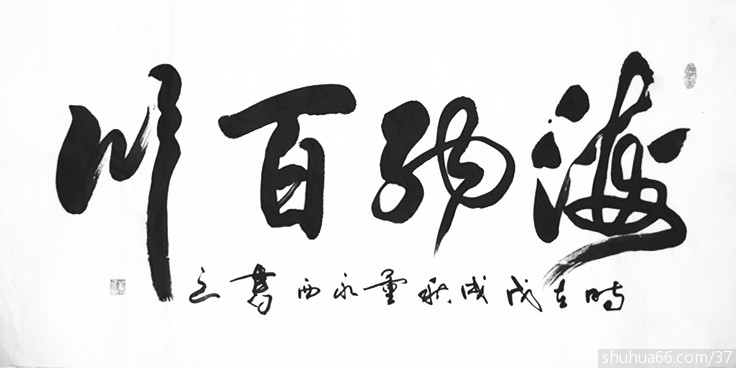 海納百川
時在戊戌秋董永西書之
shuhua66.com/37